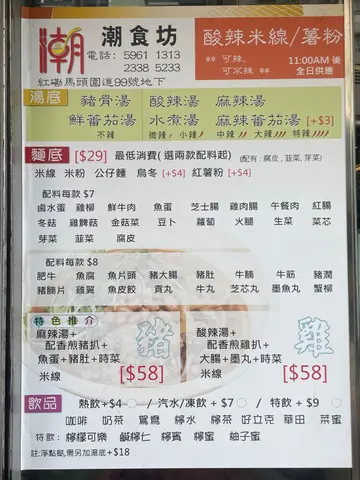 潮 潮食坊
電話: 5961 1313
2338 5233
紅磡馬頭圍道99號地下
酸辣米線/薯粉
** 可辣,
可不辣 **
11:00AM 後
全日供應
湯底
豬骨湯 酸辣湯 麻辣湯
鮮番茄湯 水煮湯 麻辣番茄湯 [+$3]
不辣 微辣 小辣 中辣 大辣 特辣
麵底 [$29] 最低消費( 選兩款配料起) (配有 : 腐皮 , 韮菜, 芽菜)
米線 米粉 公仔麵 烏冬 [+$4] 紅薯粉 [+$4]
配料每款 $7
鹵水蛋 雞柳 鮮牛肉 魚蛋 芝士腸 雞肉腸 午餐肉 紅腸
冬菇 雞髀菇 金菇菜 豆卜 蘿蔔 火腿 生菜 菜芯
芽菜 韮菜 腐皮
配料每款 $8
肥牛 魚腐 魚片頭 豬大腸 豬肚 牛腩 牛筋 豬潤
豬腩片 雞翼 魚皮餃 貢丸 牛丸 芝心丸 墨魚丸 蟹柳
特色推介
麻辣湯+
配香煎豬扒+
魚蛋+豬肚+時菜
米線 [$58]
豬
酸辣湯+
配香煎雞扒+
大腸+墨丸+時菜
米線 [$58]
雞
飲品 熱飲+$4 / 汽水/凍飲 +$7 / 特飲 +$9
咖啡 奶茶 鴛鴦 檸水 檸茶 好立克 華田 菜蜜
特飲: 檸檬可樂 鹹檸七 檸賓 檸蜜 柚子蜜
註:淨點餸,需另加湯底+$18